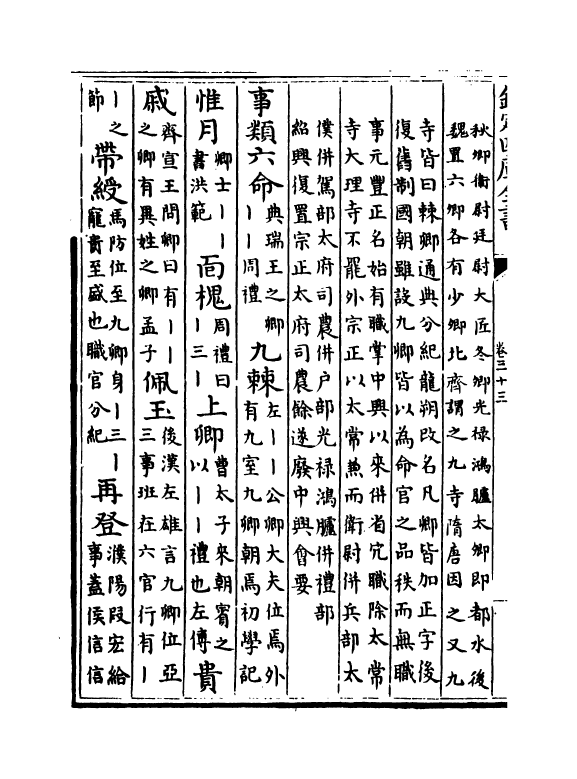 欽定四庫全書
卷三十三
秋卿衛尉廷尉大匠冬卿光禄鴻臚太卿即都水後
魏置六卿各有少卿北齊謂之九寺隋唐因之又九
寺皆曰棘卿通典分紀龍朔改名凡卿皆加正字後
復舊制國朝雖設九卿皆以為命官之品秩而無職
事元豐正名始有職掌中興以來併省冗職除太常
寺大理寺不罷外宗正以太常兼而衛尉併兵部太
僕併駕部太府司農併户部光禄鴻臚併禮部
紹興復置宗正太府司農餘遂廢中興會要
事類六命典瑞王之卿丨丨周禮九棘左丨丨公卿大夫位焉外有九室九卿朝焉初學記
惟月卿士丨丨書洪範面槐周禮曰丨三丨上卿曹太子來朝賓之以丨丨禮也左傳貴
戚齊宣王問卿曰有丨丨之卿有異姓之卿孟子佩玉後漢左雄言九卿位亞三事班在六官行有丨
丨之節帶綬馬防位至九卿身丨三丨寵貴至盛也職官分紀再登濮陽段宏給事蓋侯信信